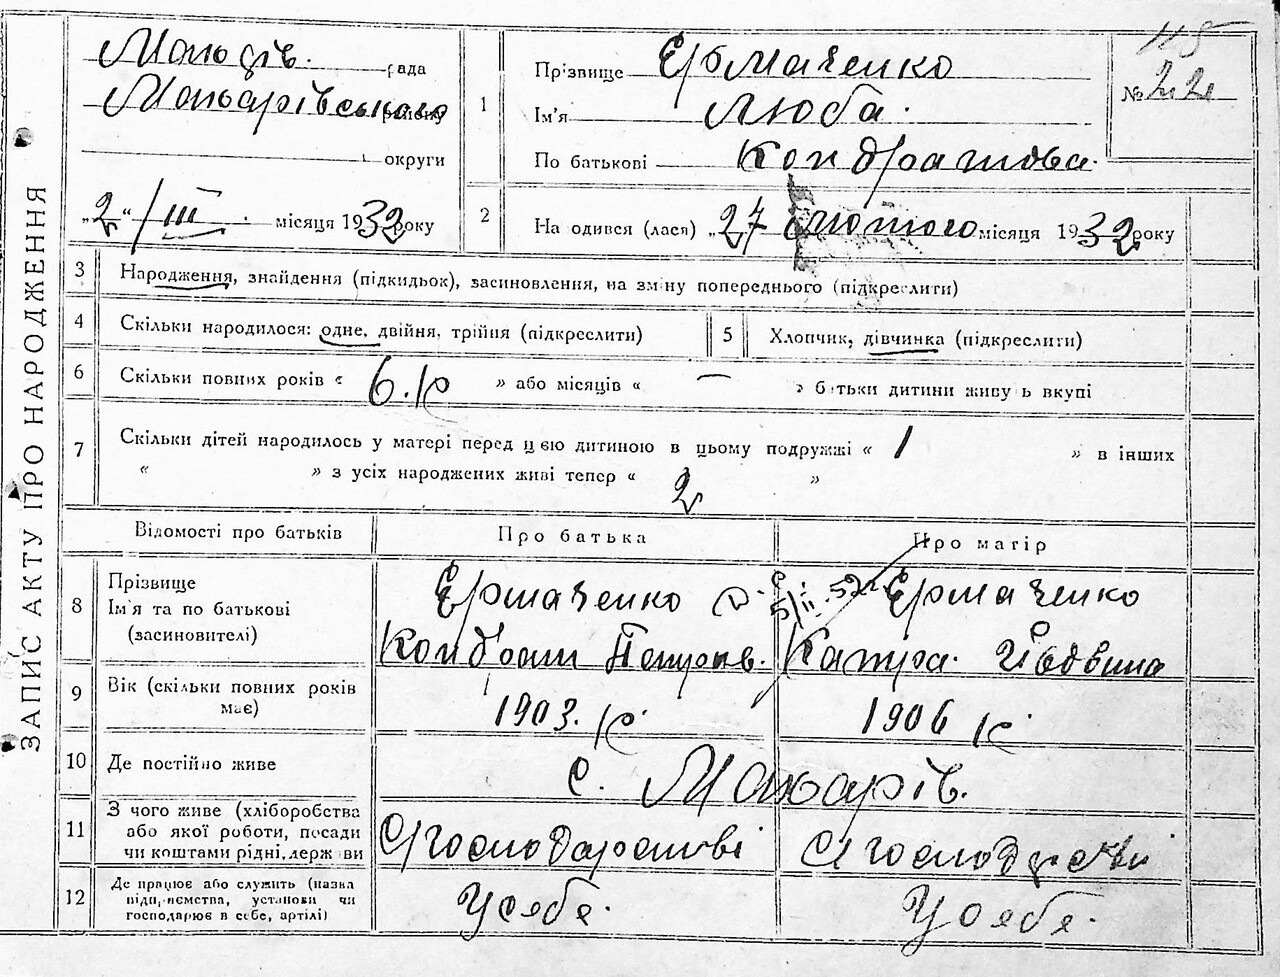 118
№ 22
ЗАПИС АКТУ ПРО НАРОДЖЕННЯ
рада
Макарівського району
округи
„2“ /III місяця 1932 року
1
Прізвище Ермаченко
Ім'я Люба.
По батькові Кондратова.
2
На одився (лася) „27 лютого місяця 1932 року
3 Народження, знайдення (підкидьок), засиновлення, на зміну попереднього (підкреслити)
4 Скільки народилося: одне, двійня, трійня (підкреслити)
5 Хлопчик, дівчинка (підкреслити)
6 Скільки повних років « 6.р » або місяців « — » батьки дитини живуть вкупі
7 Скільки дітей народилось у матері перед цею дитиною в цьому подружжі « 1 » в інших
« » з усіх народжених живі тепер « 2 »
Відомості про батьків Про батька Про матір
8 Прізвище
Ім'я та по батькові
(засиновителі)
Ермаченко
Кондрат Петров.
5/II 52
Ермаченко
Катра.
9 Вік (скільки повних років
має)
1903. р. 1906 р
10 Де постійно живе с. Макарів.
11 З чого живе (хліборобства
або якої роботи, посади
чи коштами рідні, держ ви
С/господарстві
С/господрстві
12 Де працює або служить (назва
підприємства, установи чи
господарює в себе, артілі)
У себе. У себе.